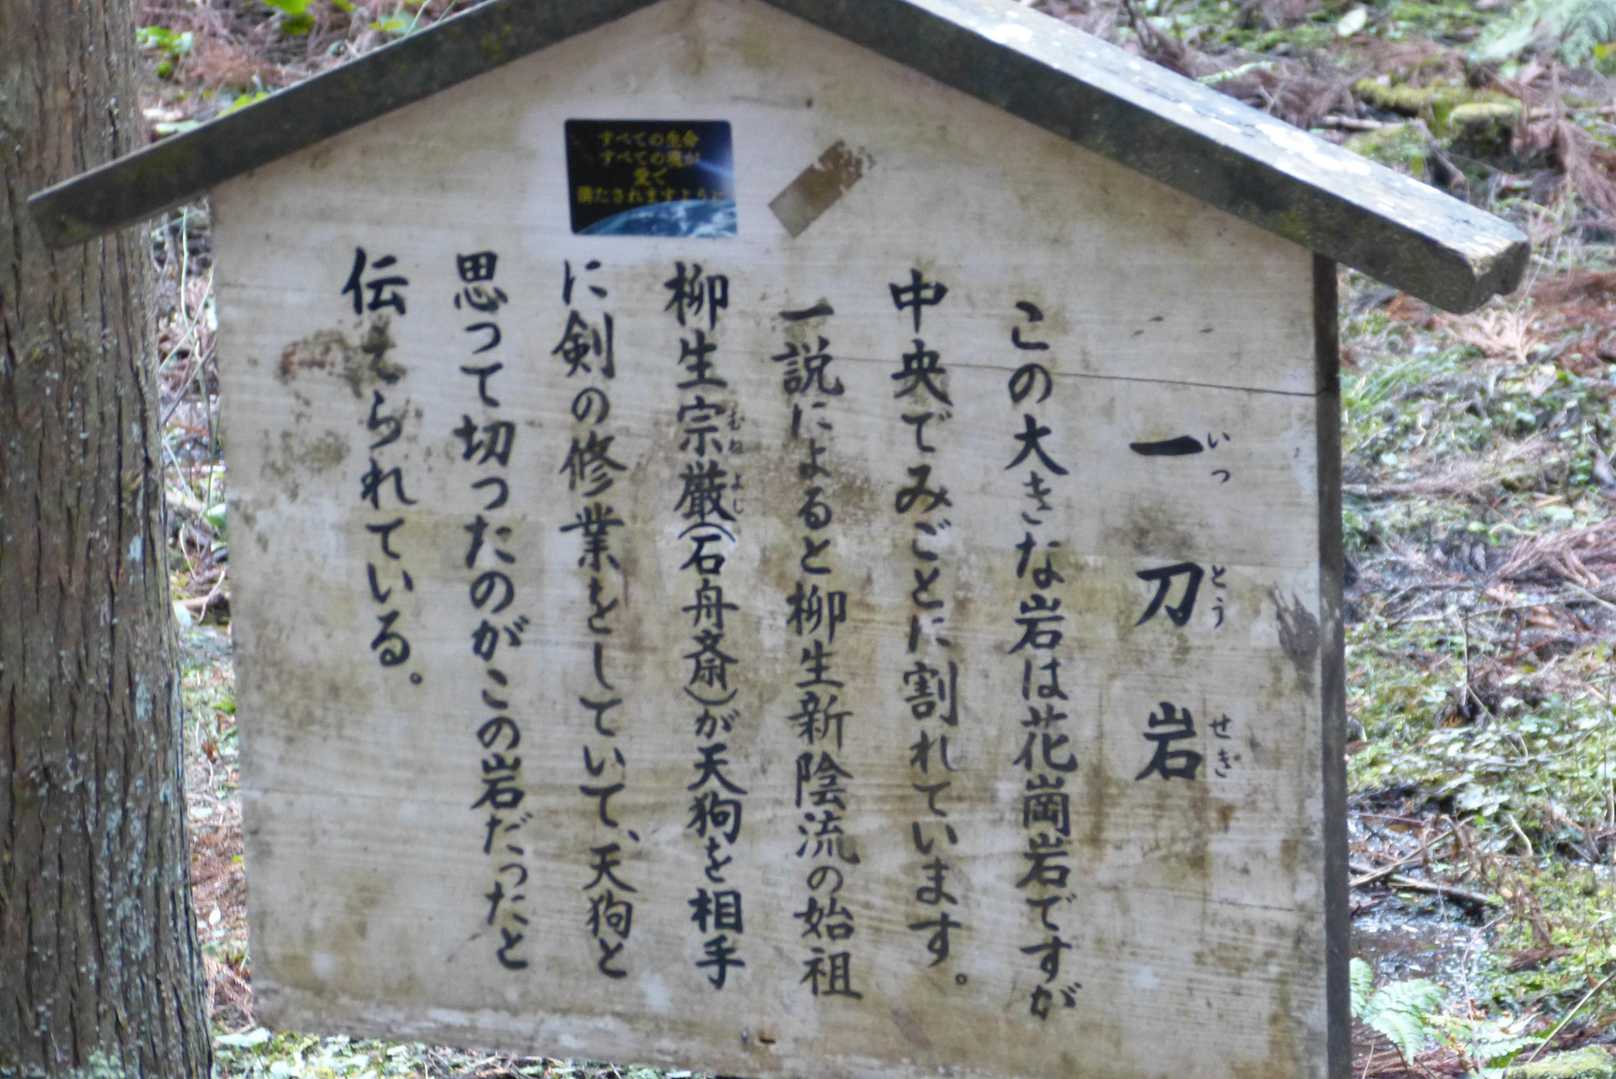 すべての生命
すべての魂が
愛で
満たされますように
一刀岩
いっとうせき
この大きな岩は花崗岩ですが
中央でみごとに割れています。
一説によると柳生新陰流の始祖
柳生宗厳(石舟斎)が天狗を相手
むねよし
に剣の修業をしていて、天狗と
思って切ったのがこの岩だったと
伝えられている。